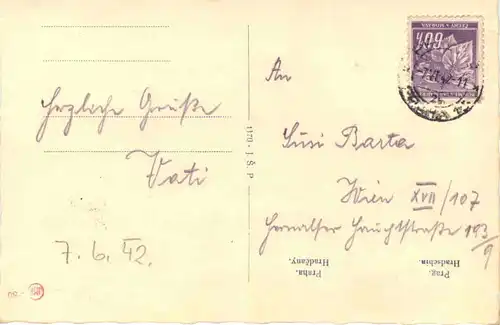 Herzliche Grüße
Vati
7.6.42.
An
Susi Barta
Wien XVII/107
Hernalser Hauptstraße 193/9
1170 - J Š P
Prag.
Hradschin.
Praha.
Hradčany.
60h
ČECHY a MORAVA